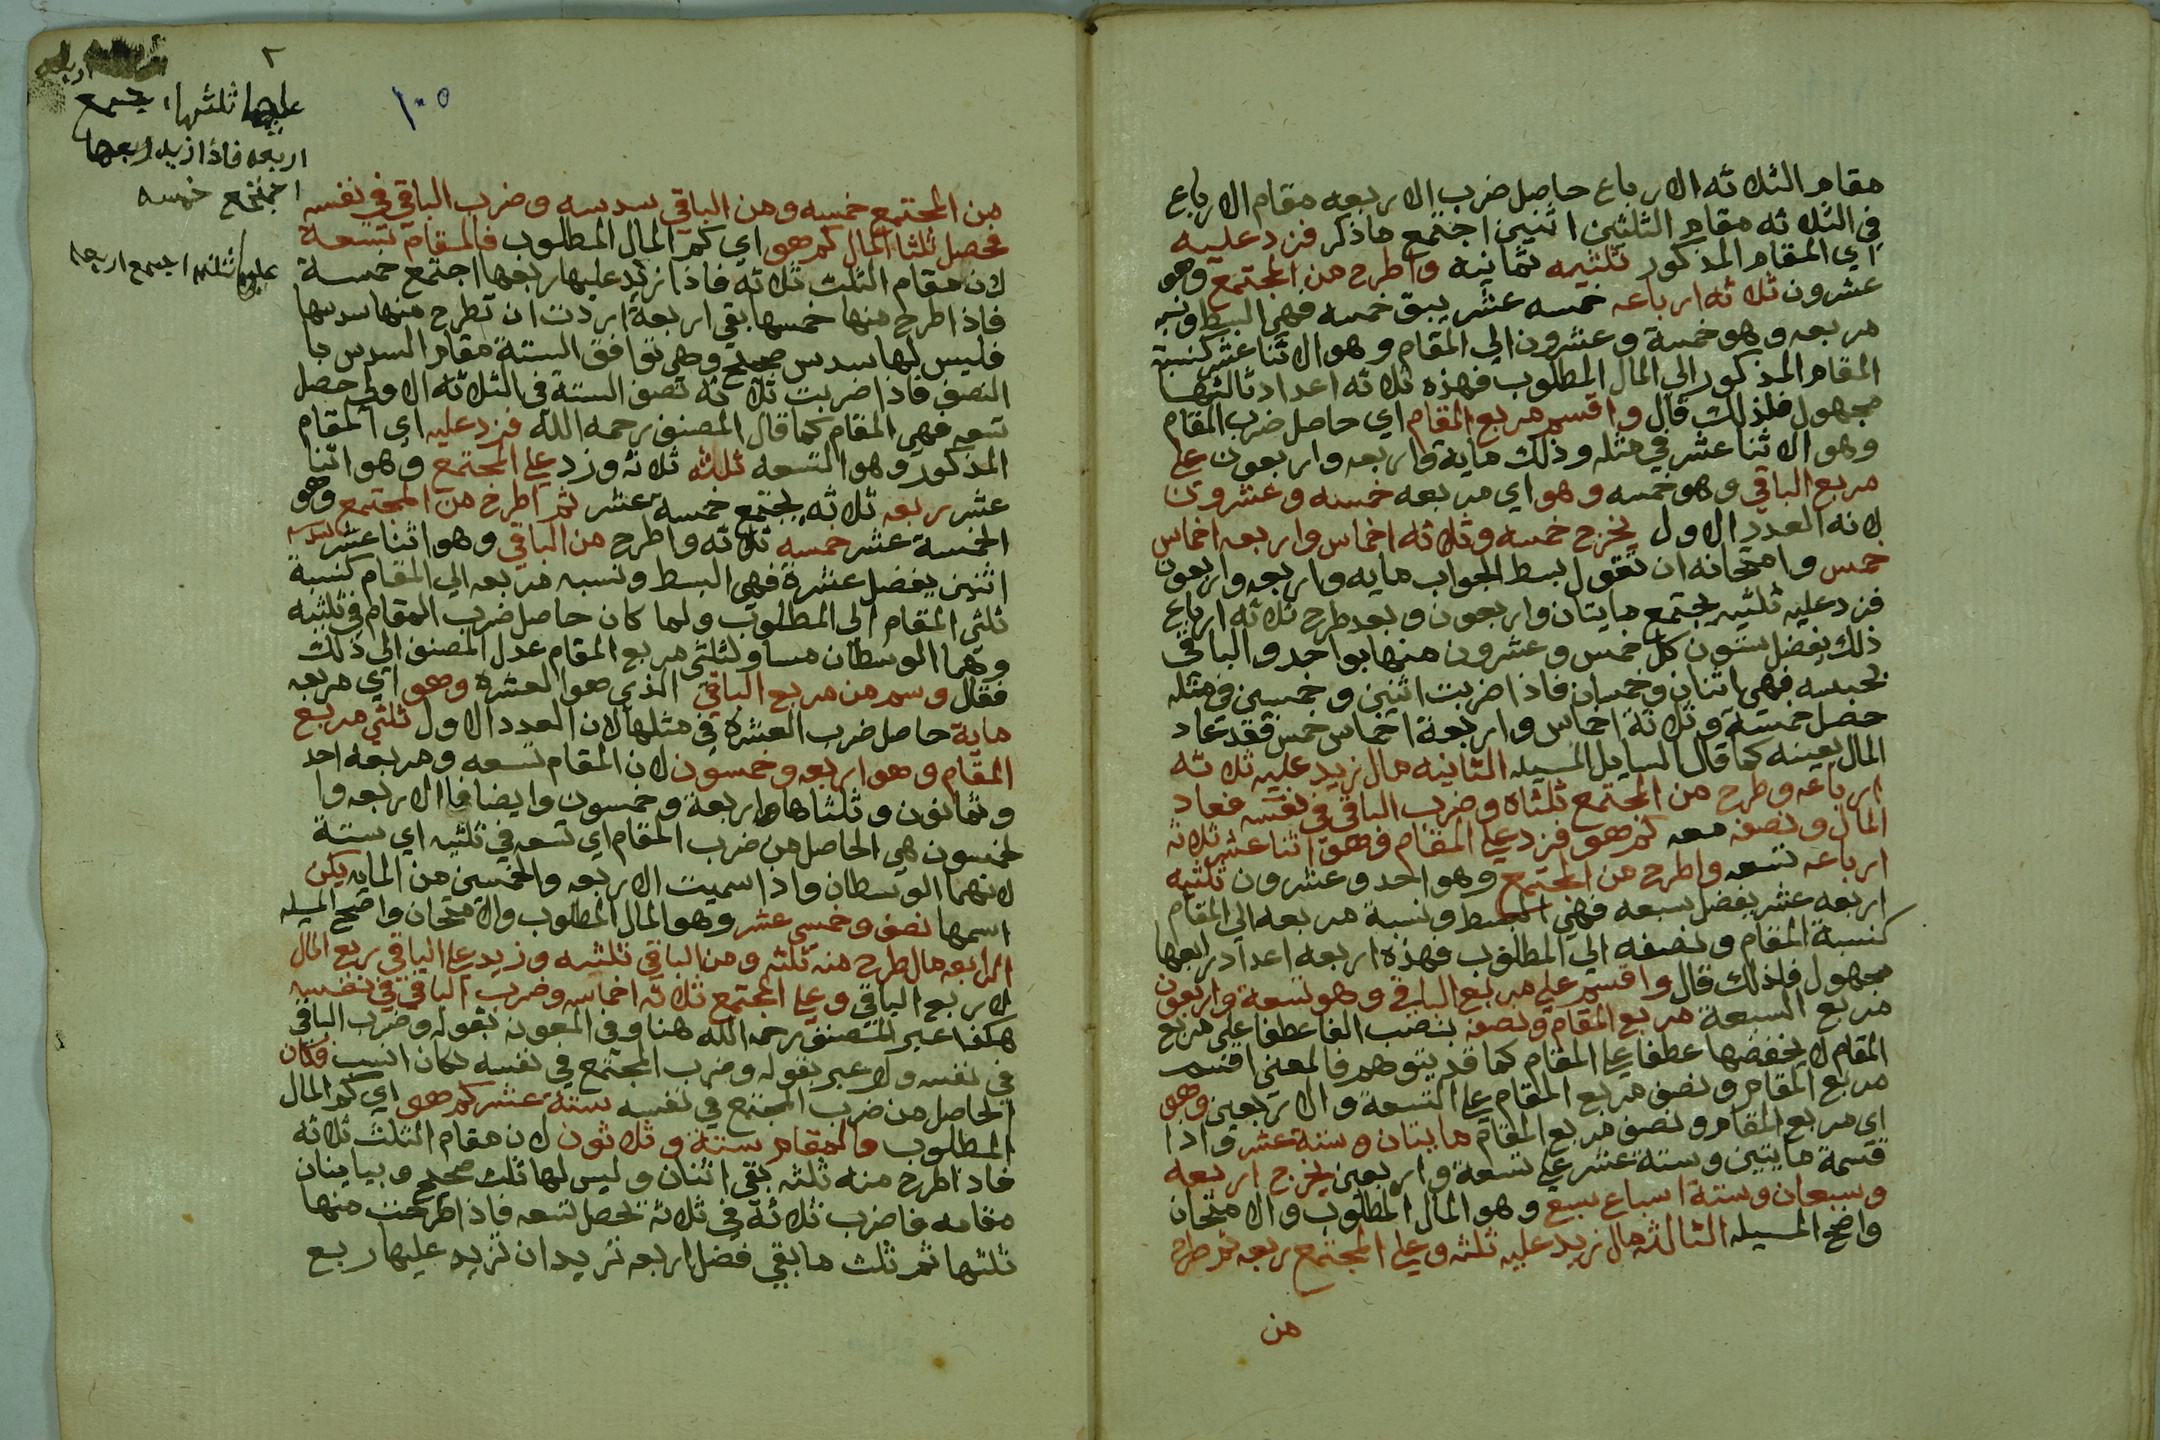 مقام الثلاثه الارباع حاصل ضرب الاربعه مقام الارباع
في الثلاثه مقام الثلثين اثنين اجتمع ماذكر فزد عليه
اي المقام المذكور ثلثيه ثمانية واطرح من المجتمع وهو
عشرون ثلاثه ارباعه خمسه عشر يبق خمسه فهي البسط ونسبه
مربعه وهو خمسة وعشرون الي المقام وهو الاثنا عشر كنسبة
المقام المذكور الي المال المطلوب فهذه ثلاثه اعداد ثالثها
مجهول فلذلك قال واقسم مربع المقام اي حاصل ضرب المقام
وهو الاثنا عشر في مثله وذلك ماية واربعه واربعون علي
مربع الباقي وهو خمسه وهو اي مربعه خمسه وعشرون
لانه العدد الاول يخرج خمسه وثلاثه اخماس واربعه اخماس
خمس وامتحانه ان تقول بسط الجواب مايه واربعه واربعون
فزد عليه ثلثيه يجتمع مايتان واربعون وبعد طرح ثلاثه ارباع
ذلك يفضل ستون كل خمس وعشرون منها بواحد والباقي
بحبسه فهي اثنان وخمسان فاذا ضربت اثنين وخمسين في مثله
حصل خمسة وثلاثة اخماس واربعة اخماس خمس فقد عاد
المال بعينه كما قال السايل المسيله الثانيه مال زيد عليه ثلاثه
ارباعه وطرح من المجتمع ثلثاه وضرب الباقي في نفسه فعاد
المال ونصفه معه كم هو فزد علي المقام فهو اثنا عشر ثلاثه
ارباعه تسعه واطرح من المجتمع وهو احد وعشرون ثلثيه
اربعه عشر يفضل سبعه فهي البسط ونسبة مربعه الي المقام
كنسبة المقام ونصفه الي المطلوب فهذه اربعه اعداد رابعها
مجهول فلذلك قال واقسم علي مربع الباقي وهو تسعة واربعون
مربع السبعة مربع المقام ونصفه بنصب الفا عطفا علي مربع
المقام لا يخفضها عطفا علي المقام كما قد يتوهم فالمعني اقسم
مربع المقام ونصف مربع المقام علي التسعة والاربعين وهو
اي مربع المقام ونصف مربع المقام مايتان وستة عشر واذا
قسمة مايتين وستة عشر علي تسعة واربعين يخرج اربعه
وسبعان وستة اسباع سبع وهو المال المطلوب والامتحان
واضح المسيله الثالثه مال زيد عليه ثلثه وعلي المجتمع ربعه ثم طرح
من
٢
١٠٥
اربعه
عليها ثلثها يجتمع
اربعه فاذا زيد ربعها
اجتمع خمسه
من المجتمع خمسه ومن الباقي سدسه وضرب الباقي في نفسه
فحصل ثلثا المال كم هو اي كم المال المطلوب فالمقام تسعة
لان مقام الثلث ثلاثه فاذا زيد عليها ربعها اجتمع خمسة
فاذا طرح منها خمسها بقي اربعة اردت ان تطرح منها سدسها
فليس لها سدس صحيح وهي توافق الستة مقام السدس با
النصف فاذا ضربت ثلاثه نصف الستة في الثلاثه الاولي حصل
تسعه فهي المقام كما قال المصنف رحمه الله فزد عليه اي المقام
المذكور وهو التسعه ثلثه ثلاثه وزد علي المجتمع وهو اثنا
عشر ربعه ثلاثه يجتمع خمسه عشر ثم اطرح من المجتمع وهو
الخمسة عشر خمسه ثلاثه واطرح من الباقي وهو اثنا عشر سدسه
اثنين يفضل عشرة فهي البسط ونسبه مربعه الي المقام كنسبة
ثلثي المقام الي المطلوب ولما كان حاصل ضرب المقام في ثلثيه
وهما الوسطان مساو لثلثي مربع المقام عدل المصنف الي ذلك
فقال وسم من مربع الباقي الذي هو العشرة وهو اي مربعه
ماية حاصل ضرب العشرة في مثلها لان العدد الاول ثلثي مربع
المقام وهو اربعه وخمسون لان المقام تسعه ومربعه احد
وثمانون وثلثاها اربعة وخمسون وايضا فا الاربعه وا
لخمسون هي الحاصل من ضرب المقام اي تسعه في ثلثيه اي ستة
لانهما الوسطان واذا سميت الاربعه والخمسين من المايه يكن
اسمها نصف وخمسي عشر وهو المال المطلوب والامتحان واضح المسيله
الرابعه مال طرح منه ثلثه ومن الباقي ثلثيه وزيد علي الباقي ربع المال
لا ربع الباقي وعلي المجتمع ثلاثه اخماسه وضرب الباقي في نفسه
هكذا عبر المصنف رحمه الله هنا وفي المعونه بقوله وضرب الباقي
في نفسه ولو عبر بقوله وضرب المجتمع في نفسه لكان انسب فكان
الحاصل من ضرب المجتمع في نفسه ستة عشر كم هو اي كم المال
المطلوب فالمقام ستة وثلاثون لان مقام الثلث ثلاثه
فاذا طرح منه ثلثه بقي اثنان وليس لها ثلث صحيح وبياينان
مقامه فاضرب ثلاثة في ثلاثه تحصل تسعه فاذا طرحت منها
ثلثها ثم ثلث ما بقي فضل اربعه تريد ان تزيد عليها ربع